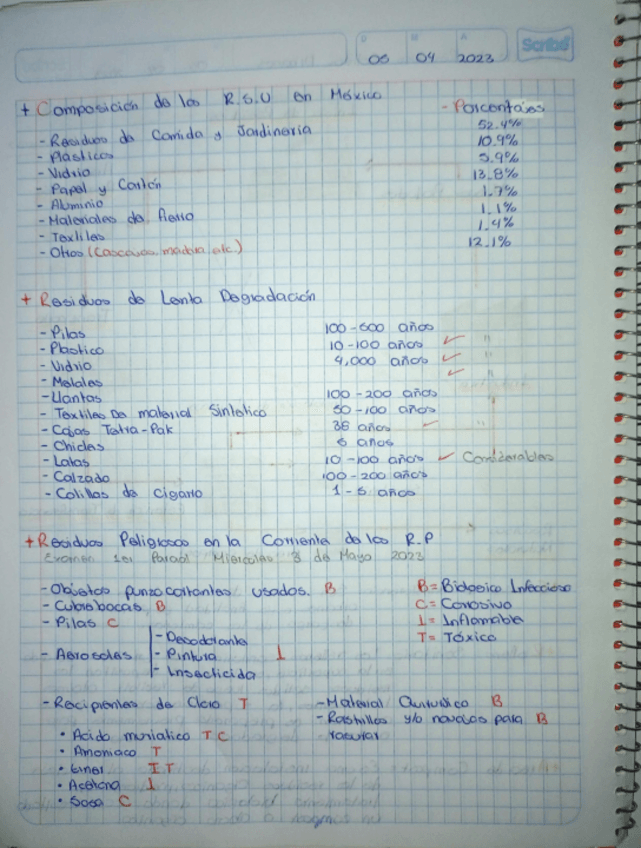 D M A
Scribe
06 04 2023
+ Composición de los R.S.U en México - Porcentajes
- Residuos de Comida y Jardineria 52.4%
- Plásticos 10.9%
- Vidrio 5.9%
- Papel y Cartón 13.8%
- Aluminio 1.7%
- Materiales de fierro 1.1%
- Textiles 1.4%
- Otros (Cascajos, madera, etc.) 12.1%
+ Residuos de Lenta Degradación
- Pilas 100-600 años
- Plastico 10-100 años ✓ "
- Vidrio 4,000 años ✓ "
- Metales ✓ "
- Llantas 100-200 años
- Textiles De material Sintetico 50-100 años
- Cajas Tetra-Pak 35 años ✓ "
- Chicles 5 años
- Latas 10-100 años ✓ Considerables
- Calzado 100-200 años
- Colillas de Cigarro 1-5 años
+ Residuos Peligrosos en la Corriente de los R.P
Examen 1er Parcial Miercoles 3 de Mayo 2023
- Objetos punzocortantes usados. B
- Cubrebocas B
- Pilas C
- Aerosoles
- Desodorante
- Pintura I
- Insecticida
B= Biologico Infeccioso
C= Corrosivo
I= Inflamable
T= Tóxico
- Recipientes de Cloro T
• Acido muriatico T C
• Amoniaco T
• tiner I T
• Acetona I
• Sosa C
- Material Curativo B
- Rastrillos y/o navajas para B
rasurar